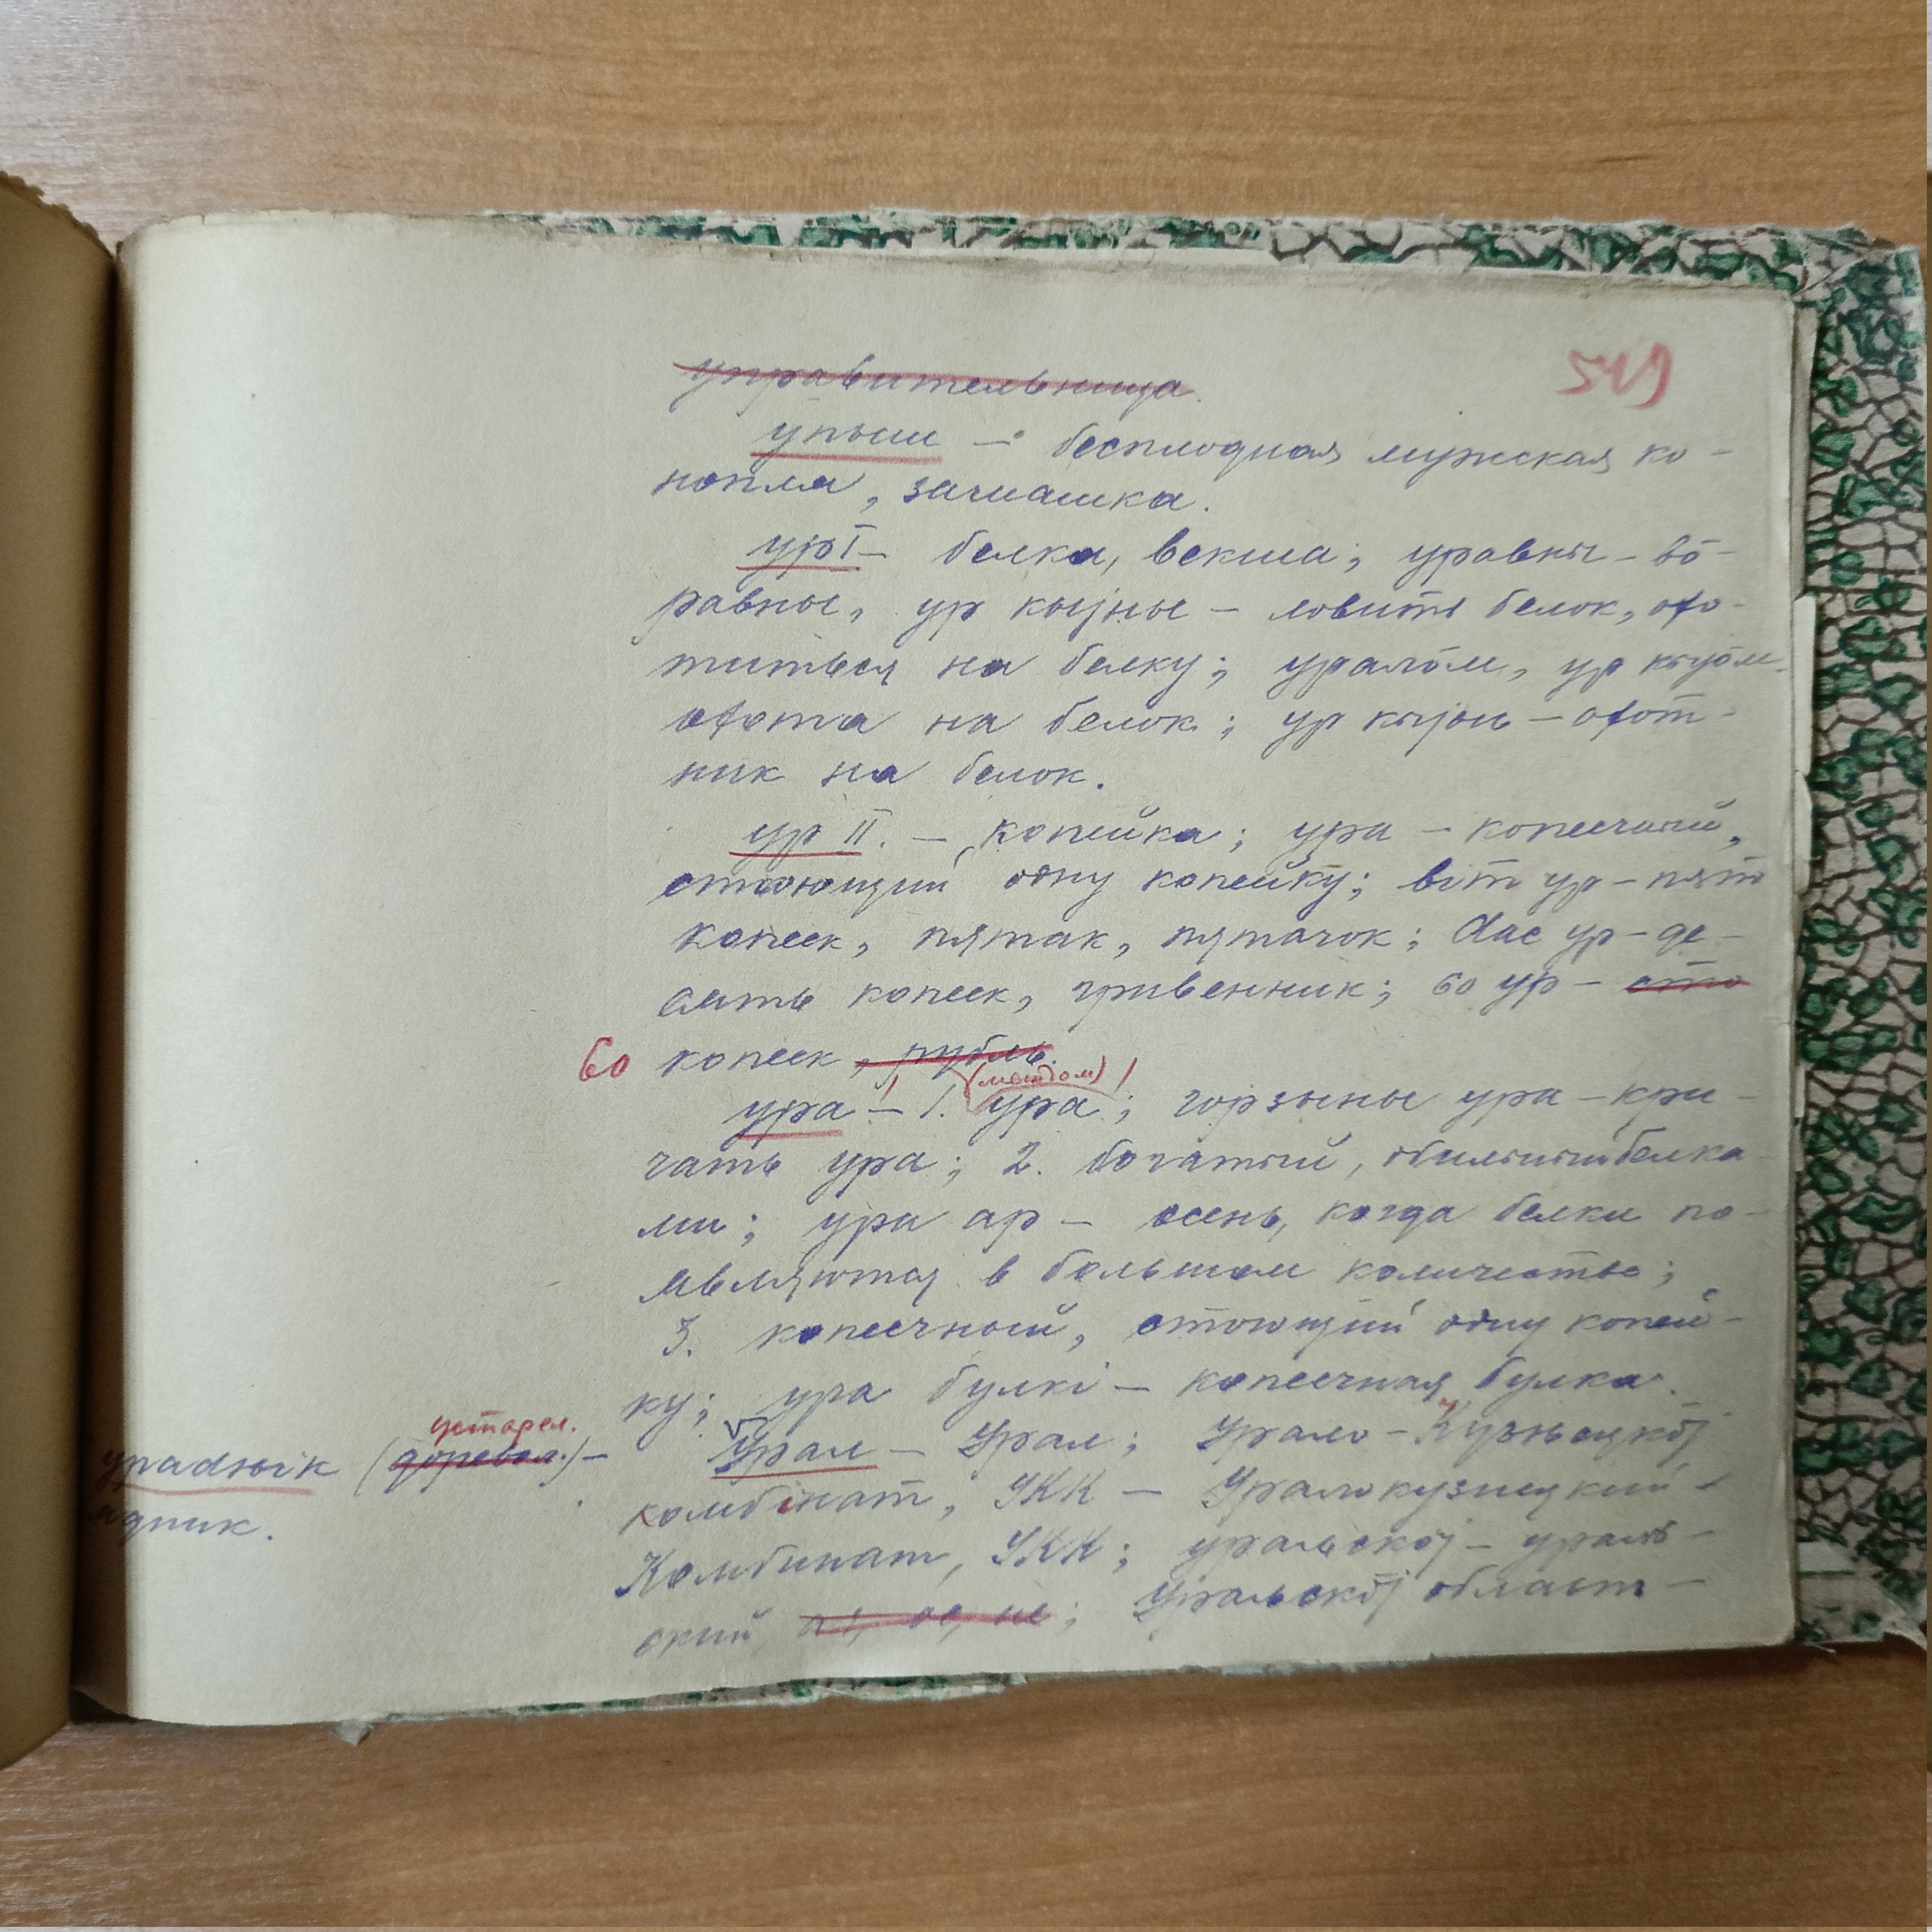 519
управительница.
упыш — бесплодная мужская ко-
нопля, замашка.
ур I — белка, векша; уравны — вӧ-
равны, ур кыјны — ловить белок, охо-
титься на белку; уралӧм, ур кыјӧм-
охота на белок; ур кыјыс — охот-
ник на белок.
ур II. — копейка; ура — копеечный,
стоющий одну копейку; віт ур — пять
копеек, пятак, пятачок; dас ур — де-
сять копеек, гривенник; 60 ур — сто
60 копеек, рубль.
(междом)
ура — 1. ура; горзыны ура — кри-
чать ура; 2. богатый, обильный белка-
ми; ура ар — осень, когда белки по-
являются в большом количестве;
3. копеечный, стоющий одну копей-
ку; ура булкі — копеечная булка.
устарел.
урadнік (доревол.) —
ядник.
Урал — Урал; Урало-Кузнецкӧј
комбінат, УКК — Уралокузнецкий
Комбинат, УКК; уральскӧј — ураль-
ский ая, ое, ые; Уральскӧј област-